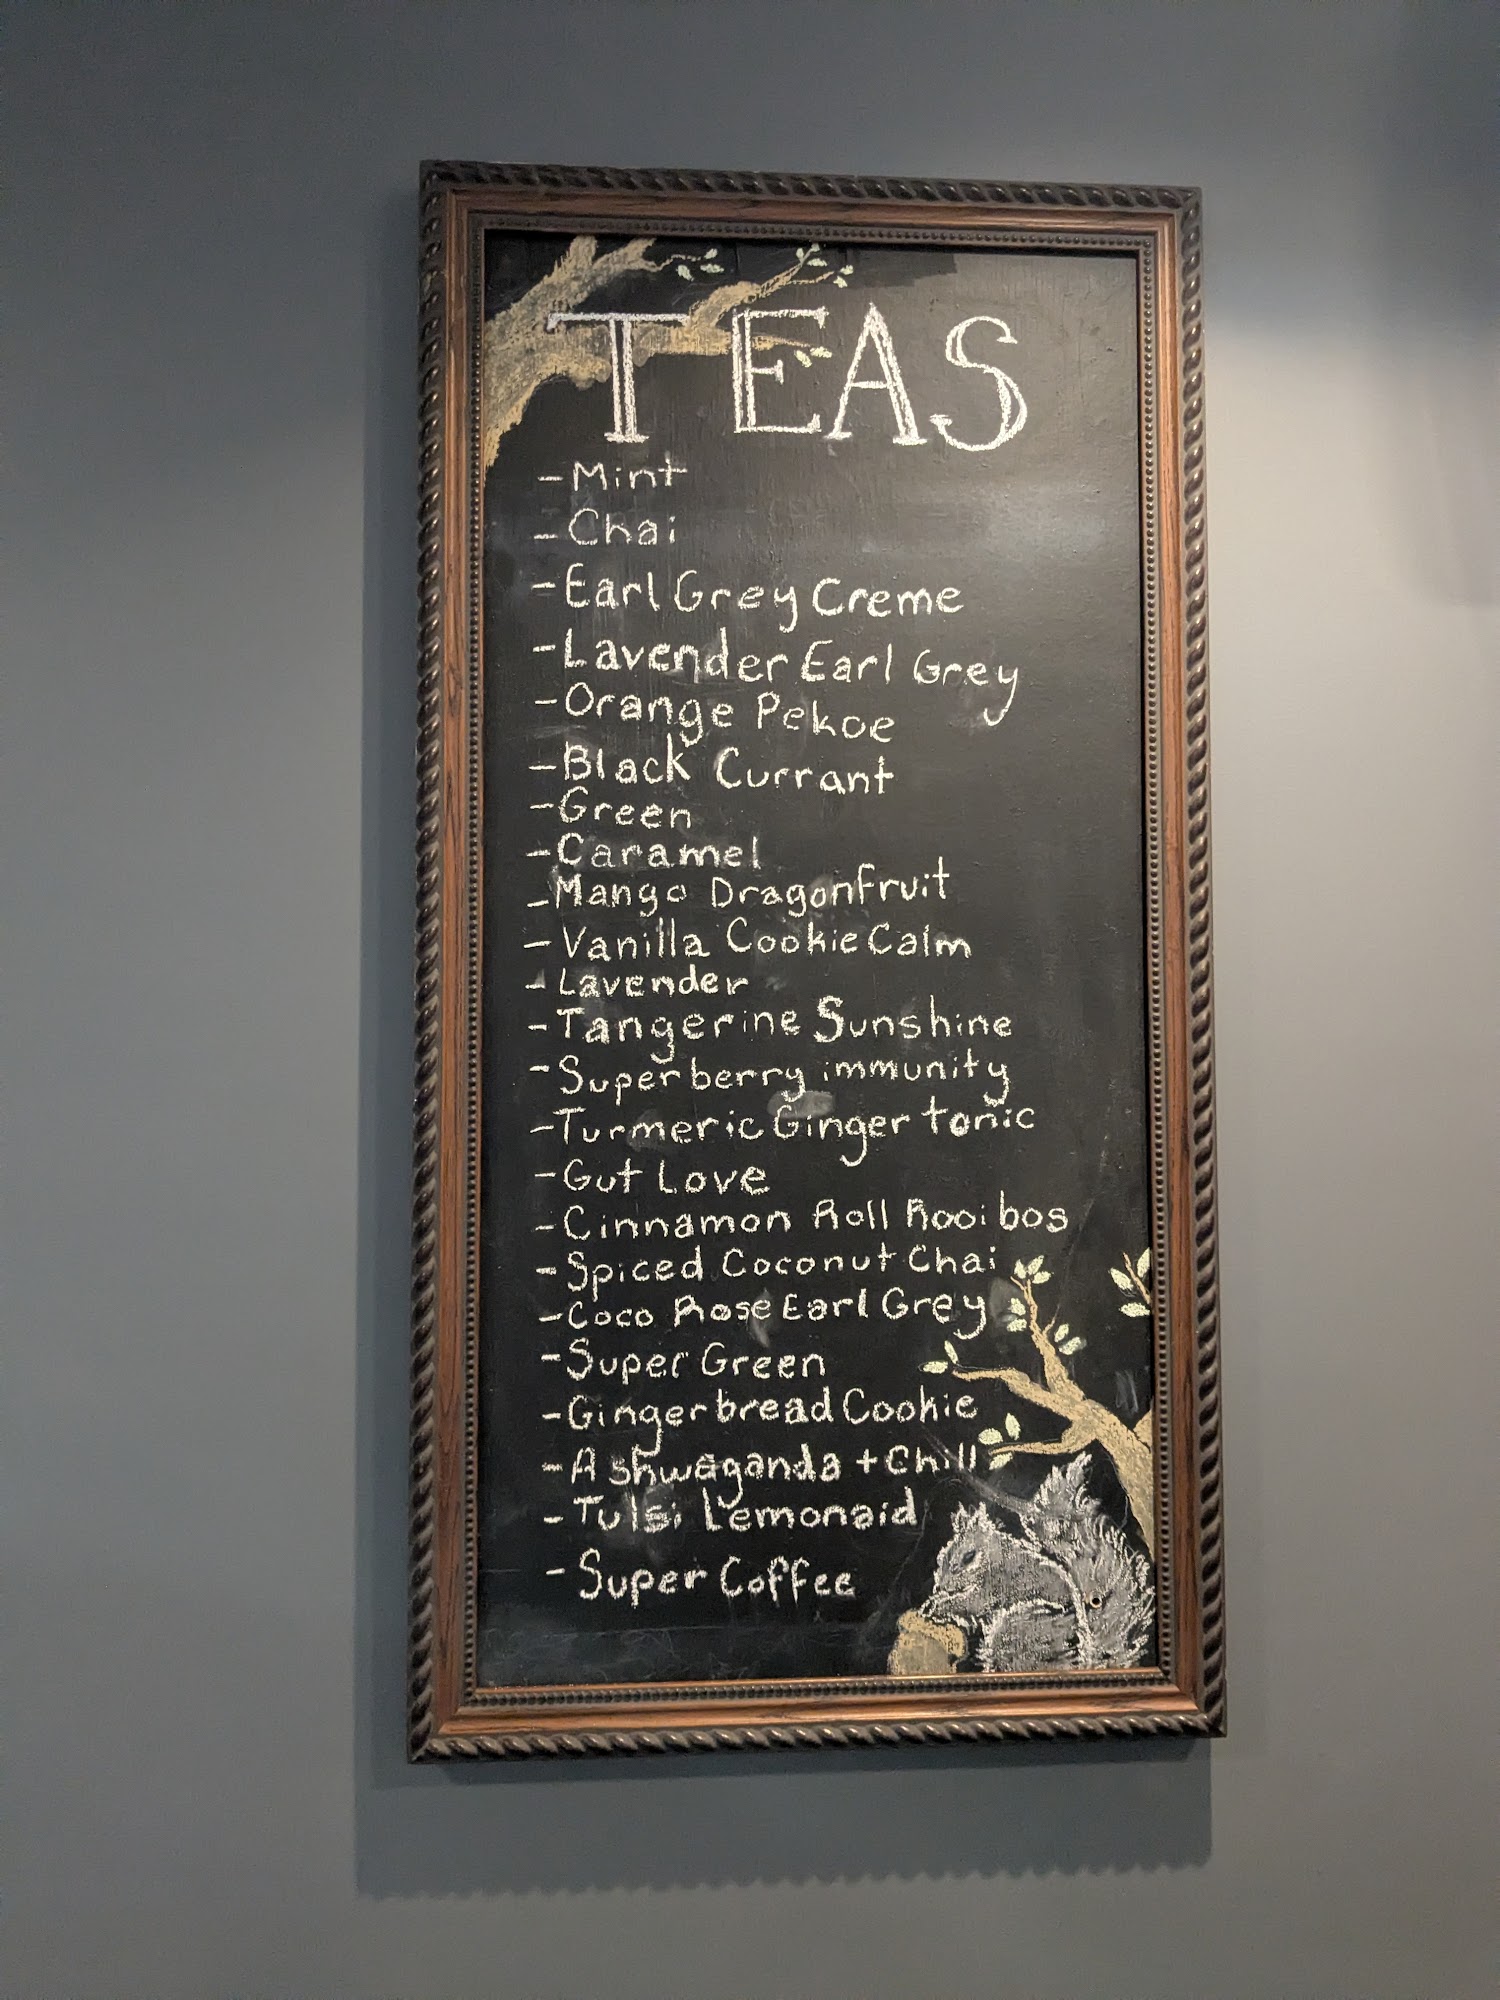 TEAS
- Mint
- Chai
- Earl Grey Creme
- Lavender Earl Grey
- Orange Pekoe
- Black Currant
- Green
- Caramel
- Mango Dragonfruit
- Vanilla Cookie Calm
- Lavender
- Tangerine Sunshine
- Superberry immunity
- Turmeric Ginger tonic
- Gut Love
- Cinnamon Roll Rooibos
- Spiced Coconut Chai
- Coco Rose Earl Grey
- Super Green
- Gingerbread Cookie
- Ashwaganda + Chill
- Tulsi Lemonaid
- Super Coffee